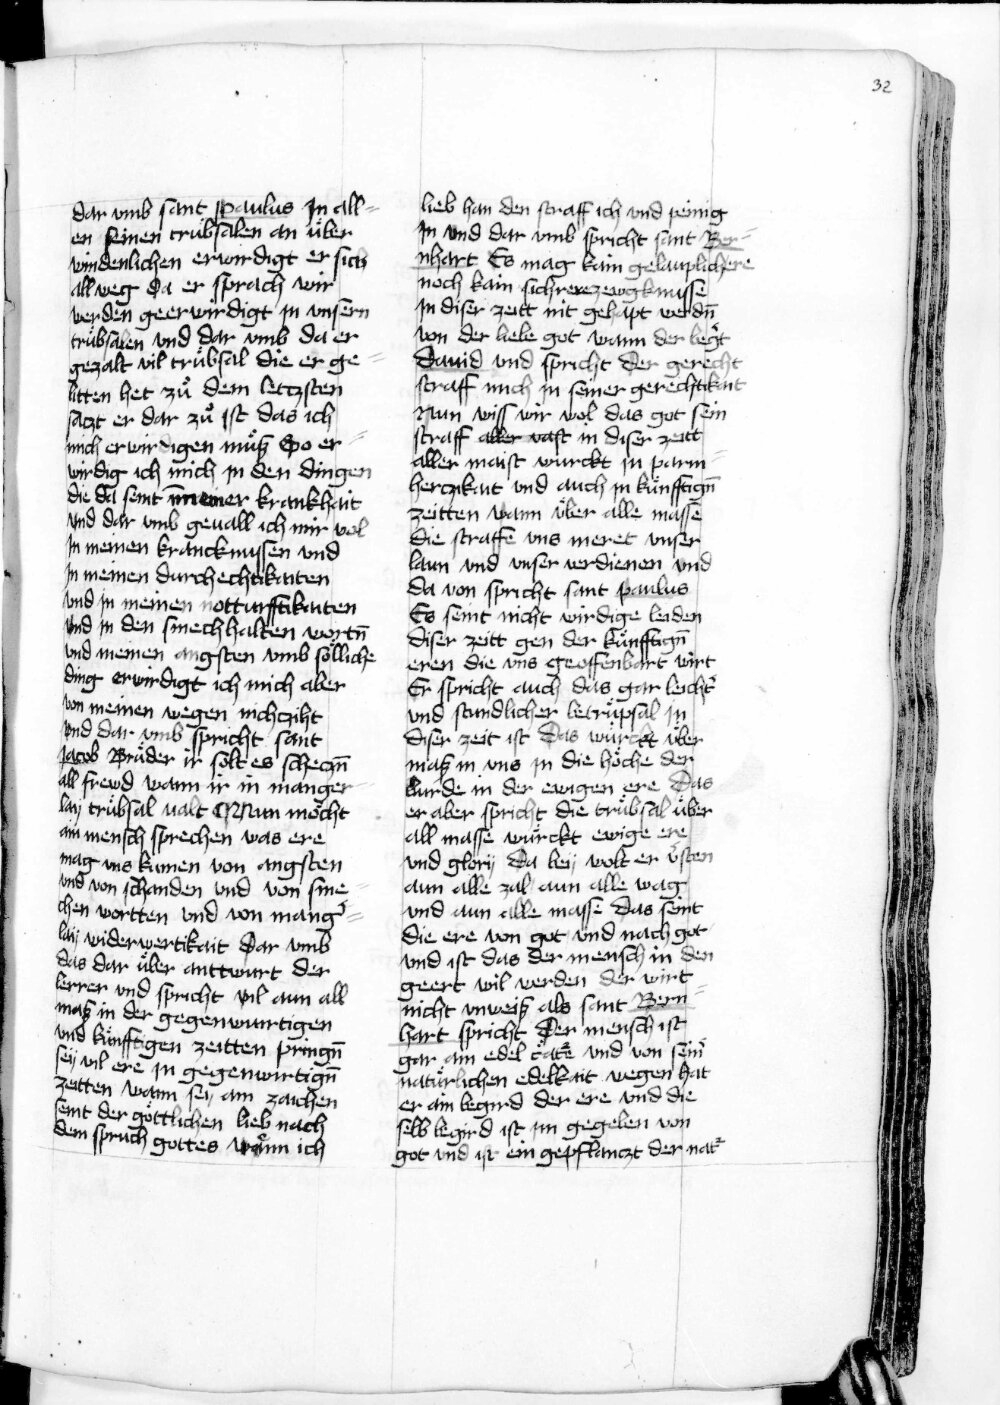 32
dar vmb sant paulus In all=
en seinen trübsalen an über
windenlichen erwirdigt er sich
allweg Da er sprach wir
werden geerwirdigt in vnsern
trübsalen vnd dar vmb da er
gezalt vil trübsal die er ge=
litten het zu dem letczsten
saczt er dar zu ist das ich
mich erwirdigen müß So er=
wirdig ich mich in den dingen
die da seint meiner krankhait
vnd dar vmb geuall ich mir wol
In meinen krancknussen vnd
In meinen durchechtikaiten
vnd in meinen notturfftikaiten
vnd in den smechhaften wortn̄
vnd meinen angsten vmb sölliche
ding erwirdigt ich mich aber
von meinen wegen nichcziht
vnd dar vmb spricht sant
Jacob Brüder ir solt es scheczn̄
all frewd wann ir in manger=
laÿ trübsal valt Nun möcht
ain mensch sprechen was ere
mag vns kumen von angsten
vnd von schanden vnd von sme=
chen wortten vnd von mang̉=
laÿ widerwertikait Dar vmb
das dar über anttwurt der
lerrer vnd spricht vil aun all
maß in der gegenwurtigen
vnd künfftigen zeitten pringn̄
seÿ vil ere in gegenwirtign̄
zeitten wann seÿ ain zaichen
seint der göttlichen lieb nach
dem spruch gottes wann ich
lieb han den straff ich vnd peinig
In vnd dar vmb spricht sant Ber=
nhart Es mag kain gelauplichere
noch kain sichrere zewgknusse
In diser zeitt nit gehapt werdn̄
von der liebe got wann der begt̉
Dauid vnd spricht der gerecht
straff mich in seiner gerechtikait
Nun wiss wir wol das got sein
straff aller vast in diser zeitt
aller maist wurckt in parm=
herczikait vnd auch in künfftign̄
zeitten wann über alle masse
die straffe vns meret vnser
laun vnd vnser verdienen vnd
da von spricht sant paulus
Es seint nicht wirdige leiden
diser zeitt gen der künfftign̄
eren die vns geoffenbart wirt
Er spricht auch das gar leicht̉
vnd stundlicher betrüpsal in
diser zeit ist Das würckt über
maß in vns in die höche der
burde in der ewigen ere Das
er aber spricht die trübsal über
all masse würckt ewige ere
vnd glorÿ Da beÿ wolt er v̉sten
aun alle zal aun alle wag
vnd aun alle masse Das seint
die ere von got vnd nach got
vnd ist das der mensch in den
geert wil werden der wirt
nicht vnweiß als sant Bern=
hart spricht Der mensch ist
gar ain edel c̉at̉e vnd von sein̉
natürlichen edelkait wegen hat
er ain begird der ere vnd die
selb begird ist im gegeben von
got vnd ist ein gepflanczt der nat̉